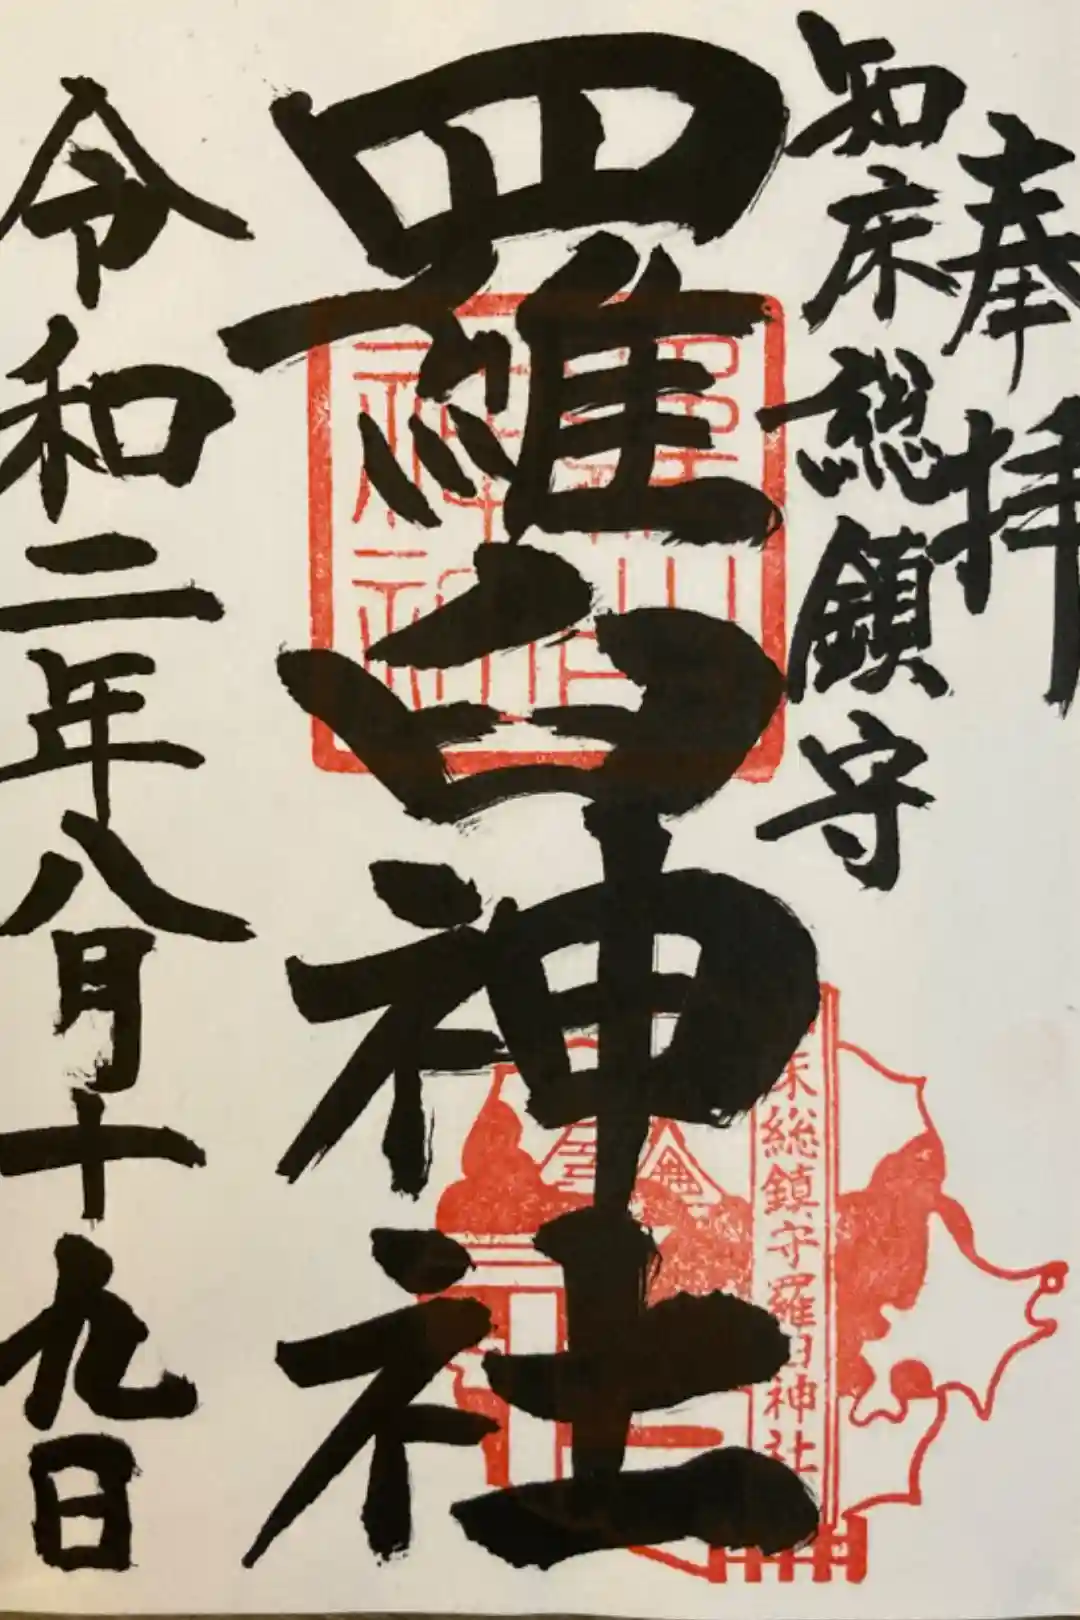 奉拝
知床総鎮守
羅臼神社
床総鎮守羅臼神社
令和二年八月十九日